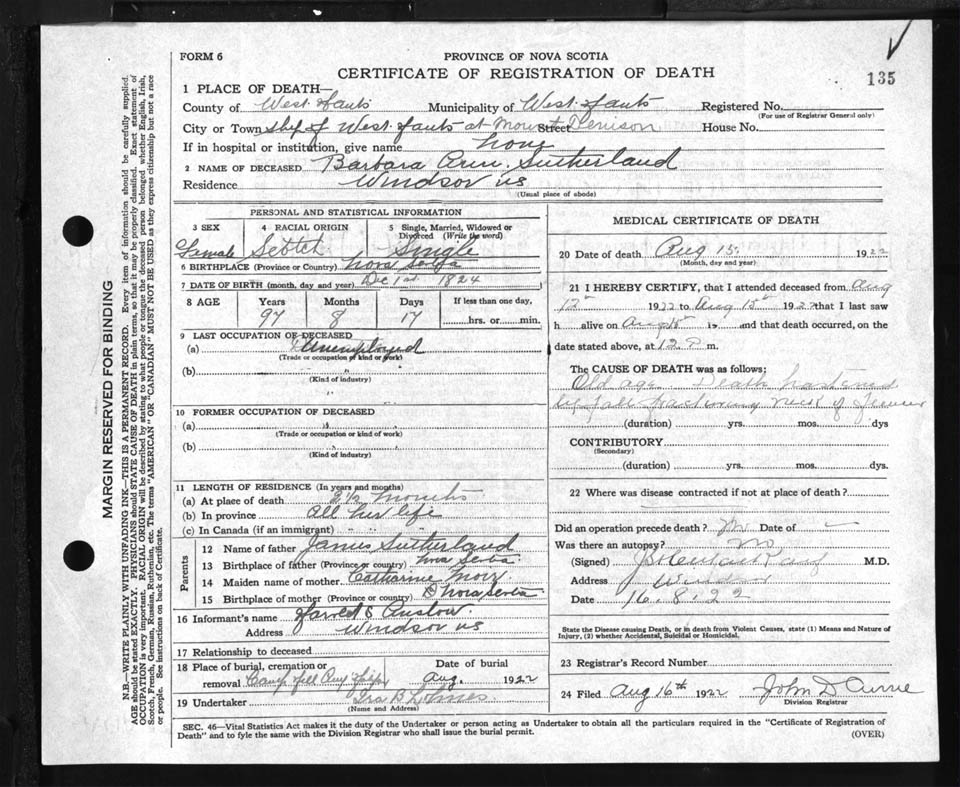 FORM 6
PROVINCE OF NOVA SCOTIA
CERTIFICATE OF REGISTRATION OF DEATH
135
1 PLACE OF DEATH—
County of West Hants Municipality of West Hants Registered No.
(For use of Registrar General only)
City or Town Shep of West Hants at Mount Denison Street House No.
If in hospital or institution, give name none
2 NAME OF DECEASED Barbara Ann Sutherland
Residence Windsor NS
(Usual place of abode)
PERSONAL AND STATISTICAL INFORMATION
3 SEX 4 RACIAL ORIGIN 5 Single, Married, Widowed or Divorced (Write the word)
Female Scotch Single
6 BIRTHPLACE (Province or Country) Nova Scotia
7 DATE OF BIRTH (month, day and year) Dec 1st 1824
8 AGE Years Months Days If less than one day,
97 8 17 hrs. or min.
9 LAST OCCUPATION OF DECEASED
(a) Unemployed
(Trade or occupation or kind of work)
(b)
(Kind of industry)
10 FORMER OCCUPATION OF DECEASED
(a)
(Trade or occupation or kind of work)
(b)
(Kind of industry)
11 LENGTH OF RESIDENCE (In years and months)
(a) At place of death 2½ months
(b) In province All her life
(c) In Canada (if an immigrant) " " "
Parents
12 Name of father James Sutherland
13 Birthplace of father (Province or country) Nova Scotia
14 Maiden name of mother Catharine
15 Birthplace of mother (Province or country) Nova Scotia
16 Informant's name Anslow
Address Windsor NS
17 Relationship to deceased
18 Place of burial, cremation or removal Camp Hill Date of burial Aug. 1922
19 Undertaker Ira B
(Name and Address)
MEDICAL CERTIFICATE OF DEATH
20 Date of death Aug 15 1922
(Month, day and year)
21 I HEREBY CERTIFY, that I attended deceased from Aug
12 1922 to Aug 15 1922 that I last saw
h alive on Aug 15 19 and that death occurred, on the
date stated above, at 12 P m.
The CAUSE OF DEATH was as follows:
Old age Death hastened
by fall fracturing neck of femur
(duration) yrs. mos. dys
CONTRIBUTORY
(Secondary)
(duration) yrs. mos. dys.
22 Where was disease contracted if not at place of death?
Did an operation precede death? No Date of
Was there an autopsy? No
(Signed) M.D.
Address Windsor
Date 16.8.22
State the Disease causing Death, or in death from Violent Causes, state (1) Means and Nature of
Injury, (2) whether Accidental, Suicidal or Homicidal.
23 Registrar's Record Number
24 Filed Aug 16th 1922 John D Currie
Division Registrar
SEC. 46—Vital Statistics Act makes it the duty of the Undertaker or person acting as Undertaker to obtain all the particulars required in the "Certificate of Registration of
Death" and to fyle the same with the Division Registrar who shall issue the burial permit.
(OVER)
MARGIN RESERVED FOR BINDING
N.B.—WRITE PLAINLY WITH UNFADING INK—THIS IS A PERMANENT RECORD. Every item of information should be carefully supplied.
AGE should be stated EXACTLY. PHYSICIANS should STATE CAUSE OF DEATH in plain terms, so that it may be properly classified. Exact statement of
OCCUPATION is very important. RACIAL ORIGIN will be described by stating to what people or tongue the deceased person belonged whether English, Irish,
Scotch, French, German, Russian, Ruthenian, etc. The terms "AMERICAN" OR "CANADIAN" MUST NOT BE USED as they express citizenship but not a race
or people. See instructions on back of Certificate.